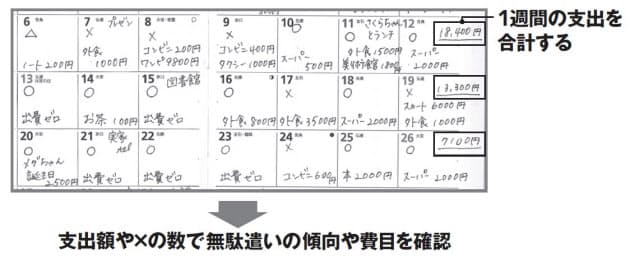 1週間の支出を
合計する
6
△
ノート200円
7 プレゼン
×
外食
1000円
8
×
コンビニ200円
ワンピ9800円
9
×
コンビニ400円
タクシー1000円
10
○
スーパー
500円
11 さくらちゃん
とランチ
○
外食1500円
美術館1800円
12
○
スーパー
2000円
18,400円
13
○
出費ゼロ
14
○
お茶100円
15 図書館
○
出費ゼロ
16
○
外食800円
17
×
外食3500円
18
○
スーパー2000円
19
×
スカート6000円
外食1000円
13,300円
20
○
メグちゃん
誕生日
2500円
21 実家
○
出費ゼロ
22
○
出費ゼロ
23
○
出費ゼロ
24
×
コンビニ600円
25
○
本2000円
26
○
スーパー
2000円
7100円
支出額や×の数で無駄遣いの傾向や費目を確認